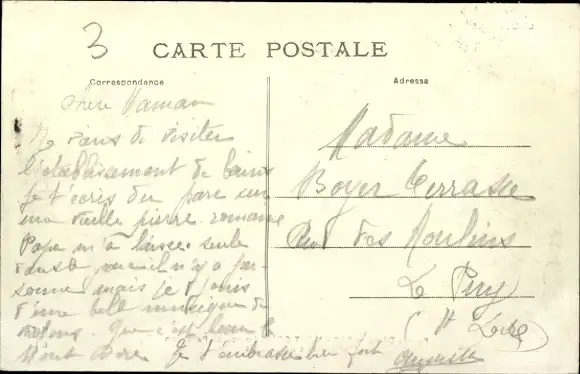 3
CARTE POSTALE
Correspondance
Adresse
Chère Maman
viens de visiter
l'établissement de bains
je t'écris du parc sur
une vieille pierre romaine
Papa m'a laissée seule
il n'y a per-
sonne mais je
d'une belle musique de
Que c'est beau le
Mont Dore. Je t'embrasse bien fort
Madame
Boyer Terrasse
des Moulins
Le Puy
(Hte Loire)